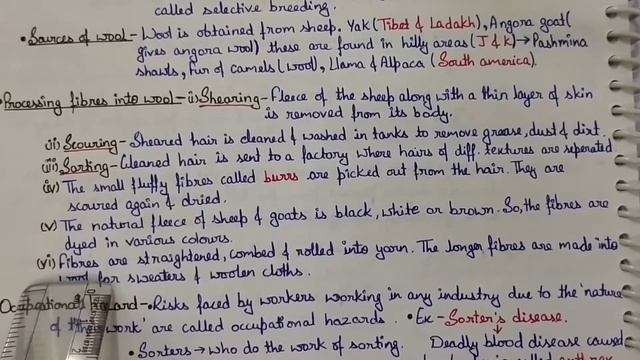 called selective breeding.
• Sources of wool - Wool is obtained from sheep, Yak (Tibet & Ladakh), Angora goat(
gives angora wool) these are found in hilly areas (J & K) → Pashmina
shawls, Fur of camels (wool), Llama & Alpaca (South america).
• Processing fibres into wool - (i) Shearing - Fleece of the sheep along with a thin layer of skin
is removed from its body.
(ii) Scouring - Sheared hair is cleaned & washed in tanks to remove grease, dust & dirt.
(iii) Sorting - Cleaned hair is sent to a factory where hairs of diff. textures are seperated
(iv) The small fluffy fibres called burrs are picked out from the hair. They are
scoured again & dried.
(v) The natural fleece of sheep & goats is black, white or brown. So, the fibres are
dyed in various colours.
(vi) Fibres are straightened, combed & rolled into yarn. The longer fibres are made into
wool for sweaters & woolen cloths.
Occupational hazard - • Risks faced by workers working in any industry due to the 'nature
of their work' are called occupational hazards. • Ex - Sorter's disease.
• Sorters → who do the work of sorting. Deadly blood disease caused